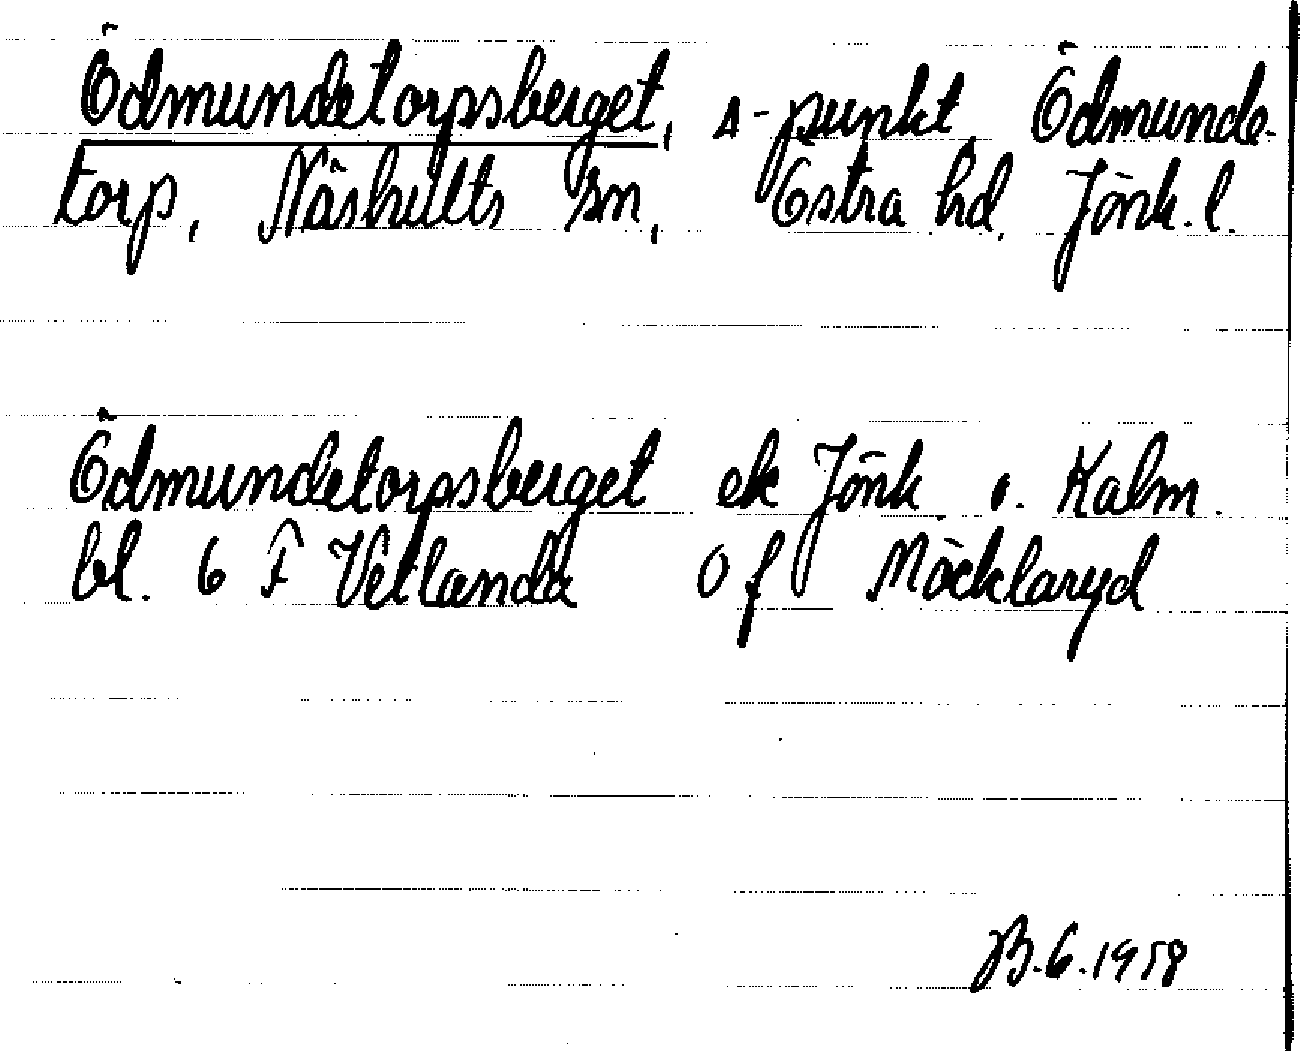 Ödmundetorpsberget, Δ-punkt, Ödmunde-
torp, Näshults sn, Östra hd, Jönk. l.
Ödmundetorpsberget ek Jönk o. Kalm.
bl. 6 F Vetlanda O f Möcklaryd
B.G.1958